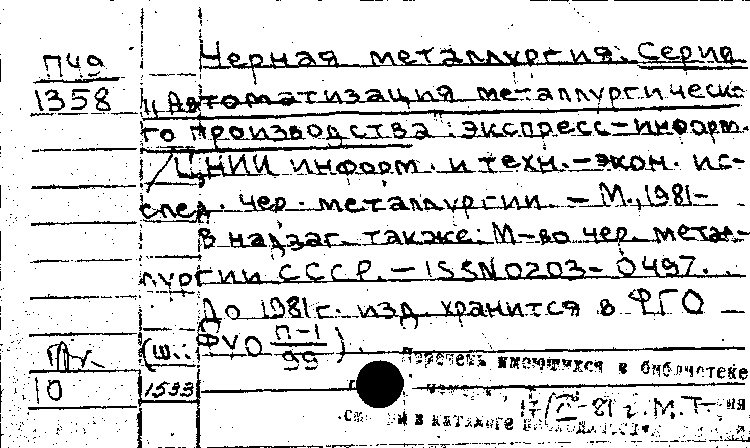 П49
1358
Черная металлургия. Серия
"Автоматизация металлургическо-
го производства": экспресс-информ.
/ЦНИИ информ. и техн.-экон. ис-
след. чер. металлургии. - М., 1981-
В надзаг. также: М-во чер. метал-
лургии СССР. - ISSN 0203-0497.
До 1981г. изд. хранится в ФГО
(ш.: ФVО П-1/99)
10
1533
Перечень имеющихся в библиотеке
номеров
17/II-81г. М.Т.
в каталоге